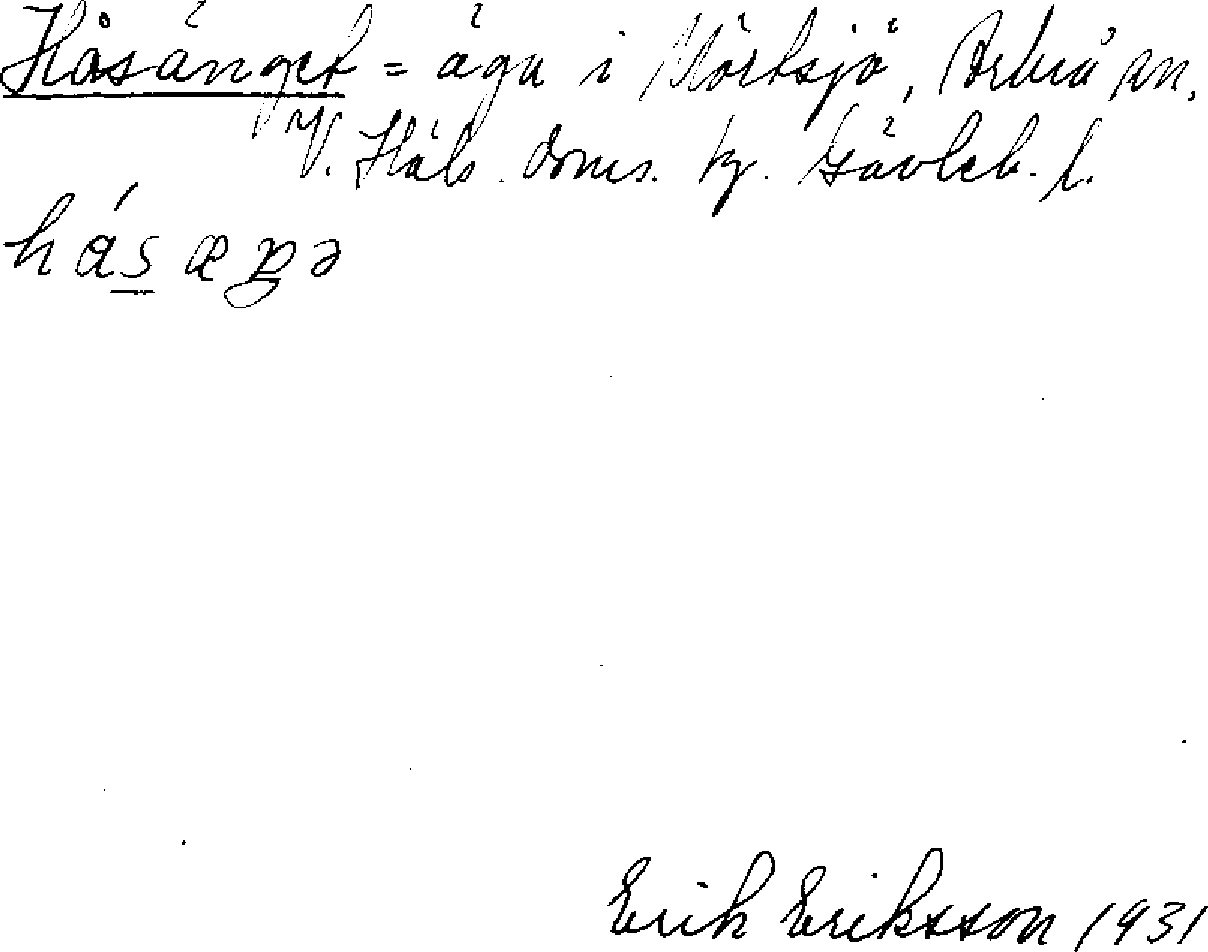 Håsänget = äga i Mörtsjö, Arbrå sn.
V. Häls. doms. hg. Gävleb. l.
hásæŋə
Erik Eriksson 1931